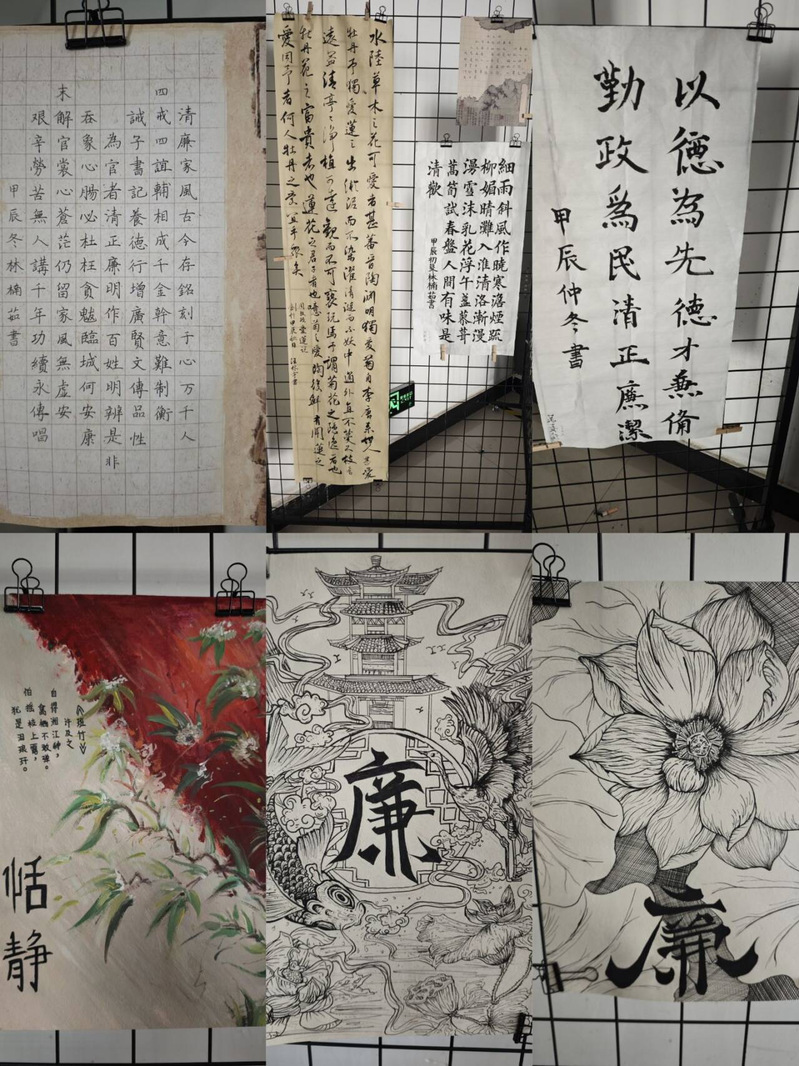 清廉家風古今存銘刻于心万千人
四戒四誼輔相成千金幹意難制衡
誡子書記養德行增廣賢文傳品性
為官者清正廉明作百姓明辨是非
吞象心腸必杜枉貪魅臨城何安康
末解官裳心蒼茫仍留家風無虛安
艱辛勞苦無人講千年功績永傳唱
甲辰冬林楠茹書
水陸草木之花可愛者甚蕃晉陶淵明獨愛菊自李唐来世人甚愛
牡丹予獨愛蓮之出淤泥而不染濯清漣而不妖中通外直不蔓不枝香
遠益清亭亭净植可遠觀而不可褻玩焉予謂菊花之隐逸者也
牡丹花之富貴者也蓮花之君子者也噫菊之愛陶後鮮有聞蓮之
愛同予者何人牡丹之愛宜乎眾矣
細雨斜風作曉寒淡煙疏
柳媚晴灘入淮清洛漸漫
漫雪沫乳花浮午盞蓼茸
蒿筍試春盤人間有味是
清歡
甲辰初夏林楠茹書
以德為先德才兼備
勤政爲民清正廉潔
甲辰仲冬書
《斑竹》
許及之
自得湘江種，
枝上露，
恬静
廉
廉